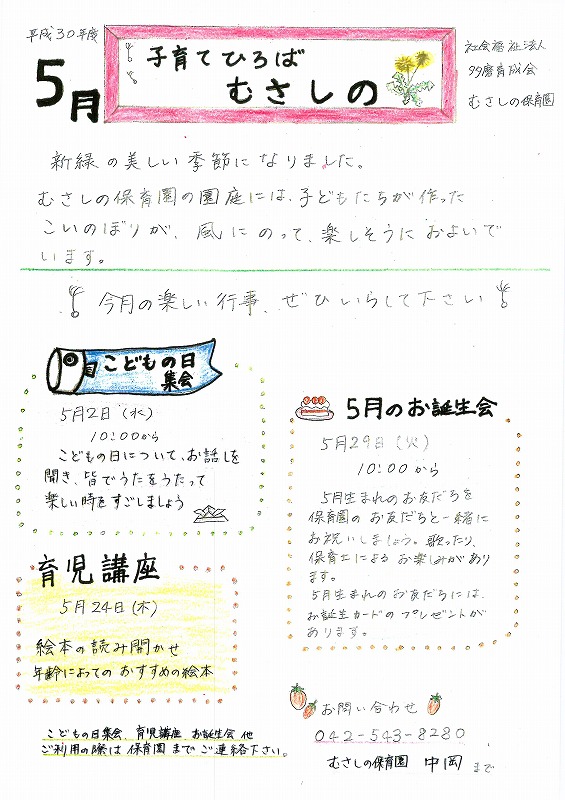 平成30年度
5月
子育てひろば
むさしの
社会福祉法人
多摩育成会
むさしの保育園
新緑の美しい季節になりました。
むさしの保育園の園庭には、子どもたちが作った
こいのぼりが、風にのって、楽しそうにおよいで
います。
今月の楽しい行事、ぜひいらして下さい
こどもの日
集会
5月2日(水)
10:00から
こどもの日について、お話しを
聞き、皆でうたをうたって
楽しい時をすごしましょう
5月のお誕生会
5月29日(火)
10:00から
5月生まれのお友だちを
保育園のお友だちと一緒に
お祝いしましょう。歌ったり、
保育士によるお楽しみがあり
ます。
5月生まれのお友だちには、
お誕生カードのプレゼントが
あります。
育児講座
5月24日(木)
絵本の読み聞かせ
年齢によってのおすすめの絵本
お問い合わせ
042-543-8280
むさしの保育園 中岡まで
こどもの日集会、育児講座、お誕生会他
ご利用の際は保育園までご連絡下さい。